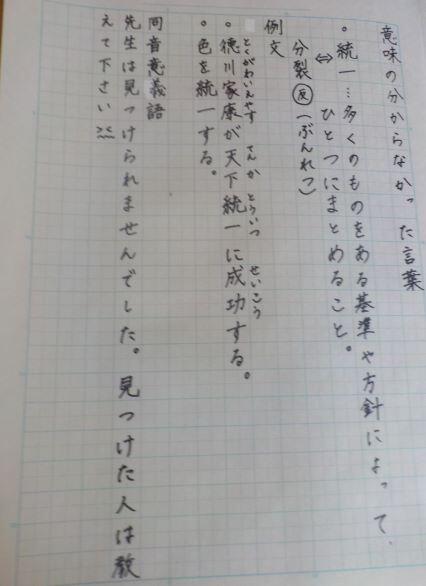 意味の分からなかった言葉
。統一…多くのものをある基準や方針によって、
ひとつにまとめること。
⇔
分裂反(ぶんれつ)
例文
とくがわいえやす てんか とういつ せいこう
。徳川家康が天下統一に成功する。
。色を統一する。
同音意義語
先生は見つけられませんでした。見つけた人は教
えて下さい >_<